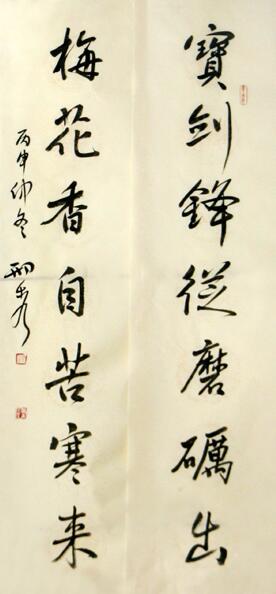 寶剑鋒從磨礪出
梅花香自苦寒来
丙申仲冬